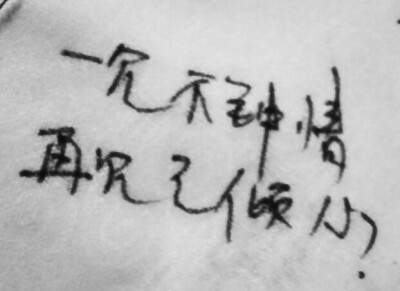 一见不钟情
再见已倾心?